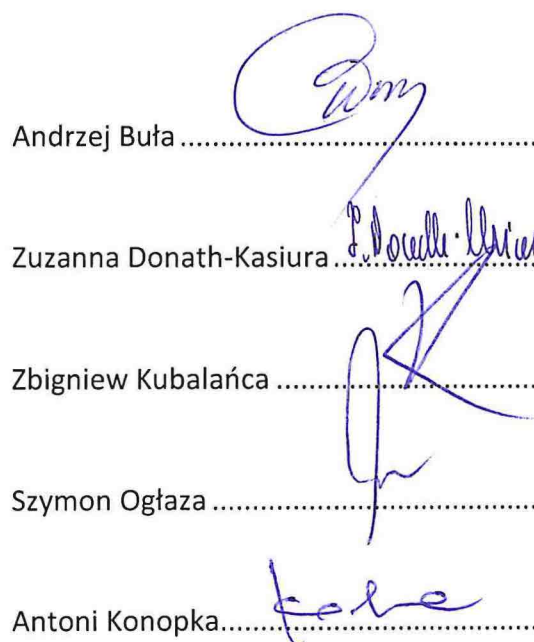 Andrzej Buła ..............................................
Zuzanna Donath-Kasiura ........................
Zbigniew Kubalańca .................................
Szymon Ogłaza .........................................
Antoni Konopka........................................